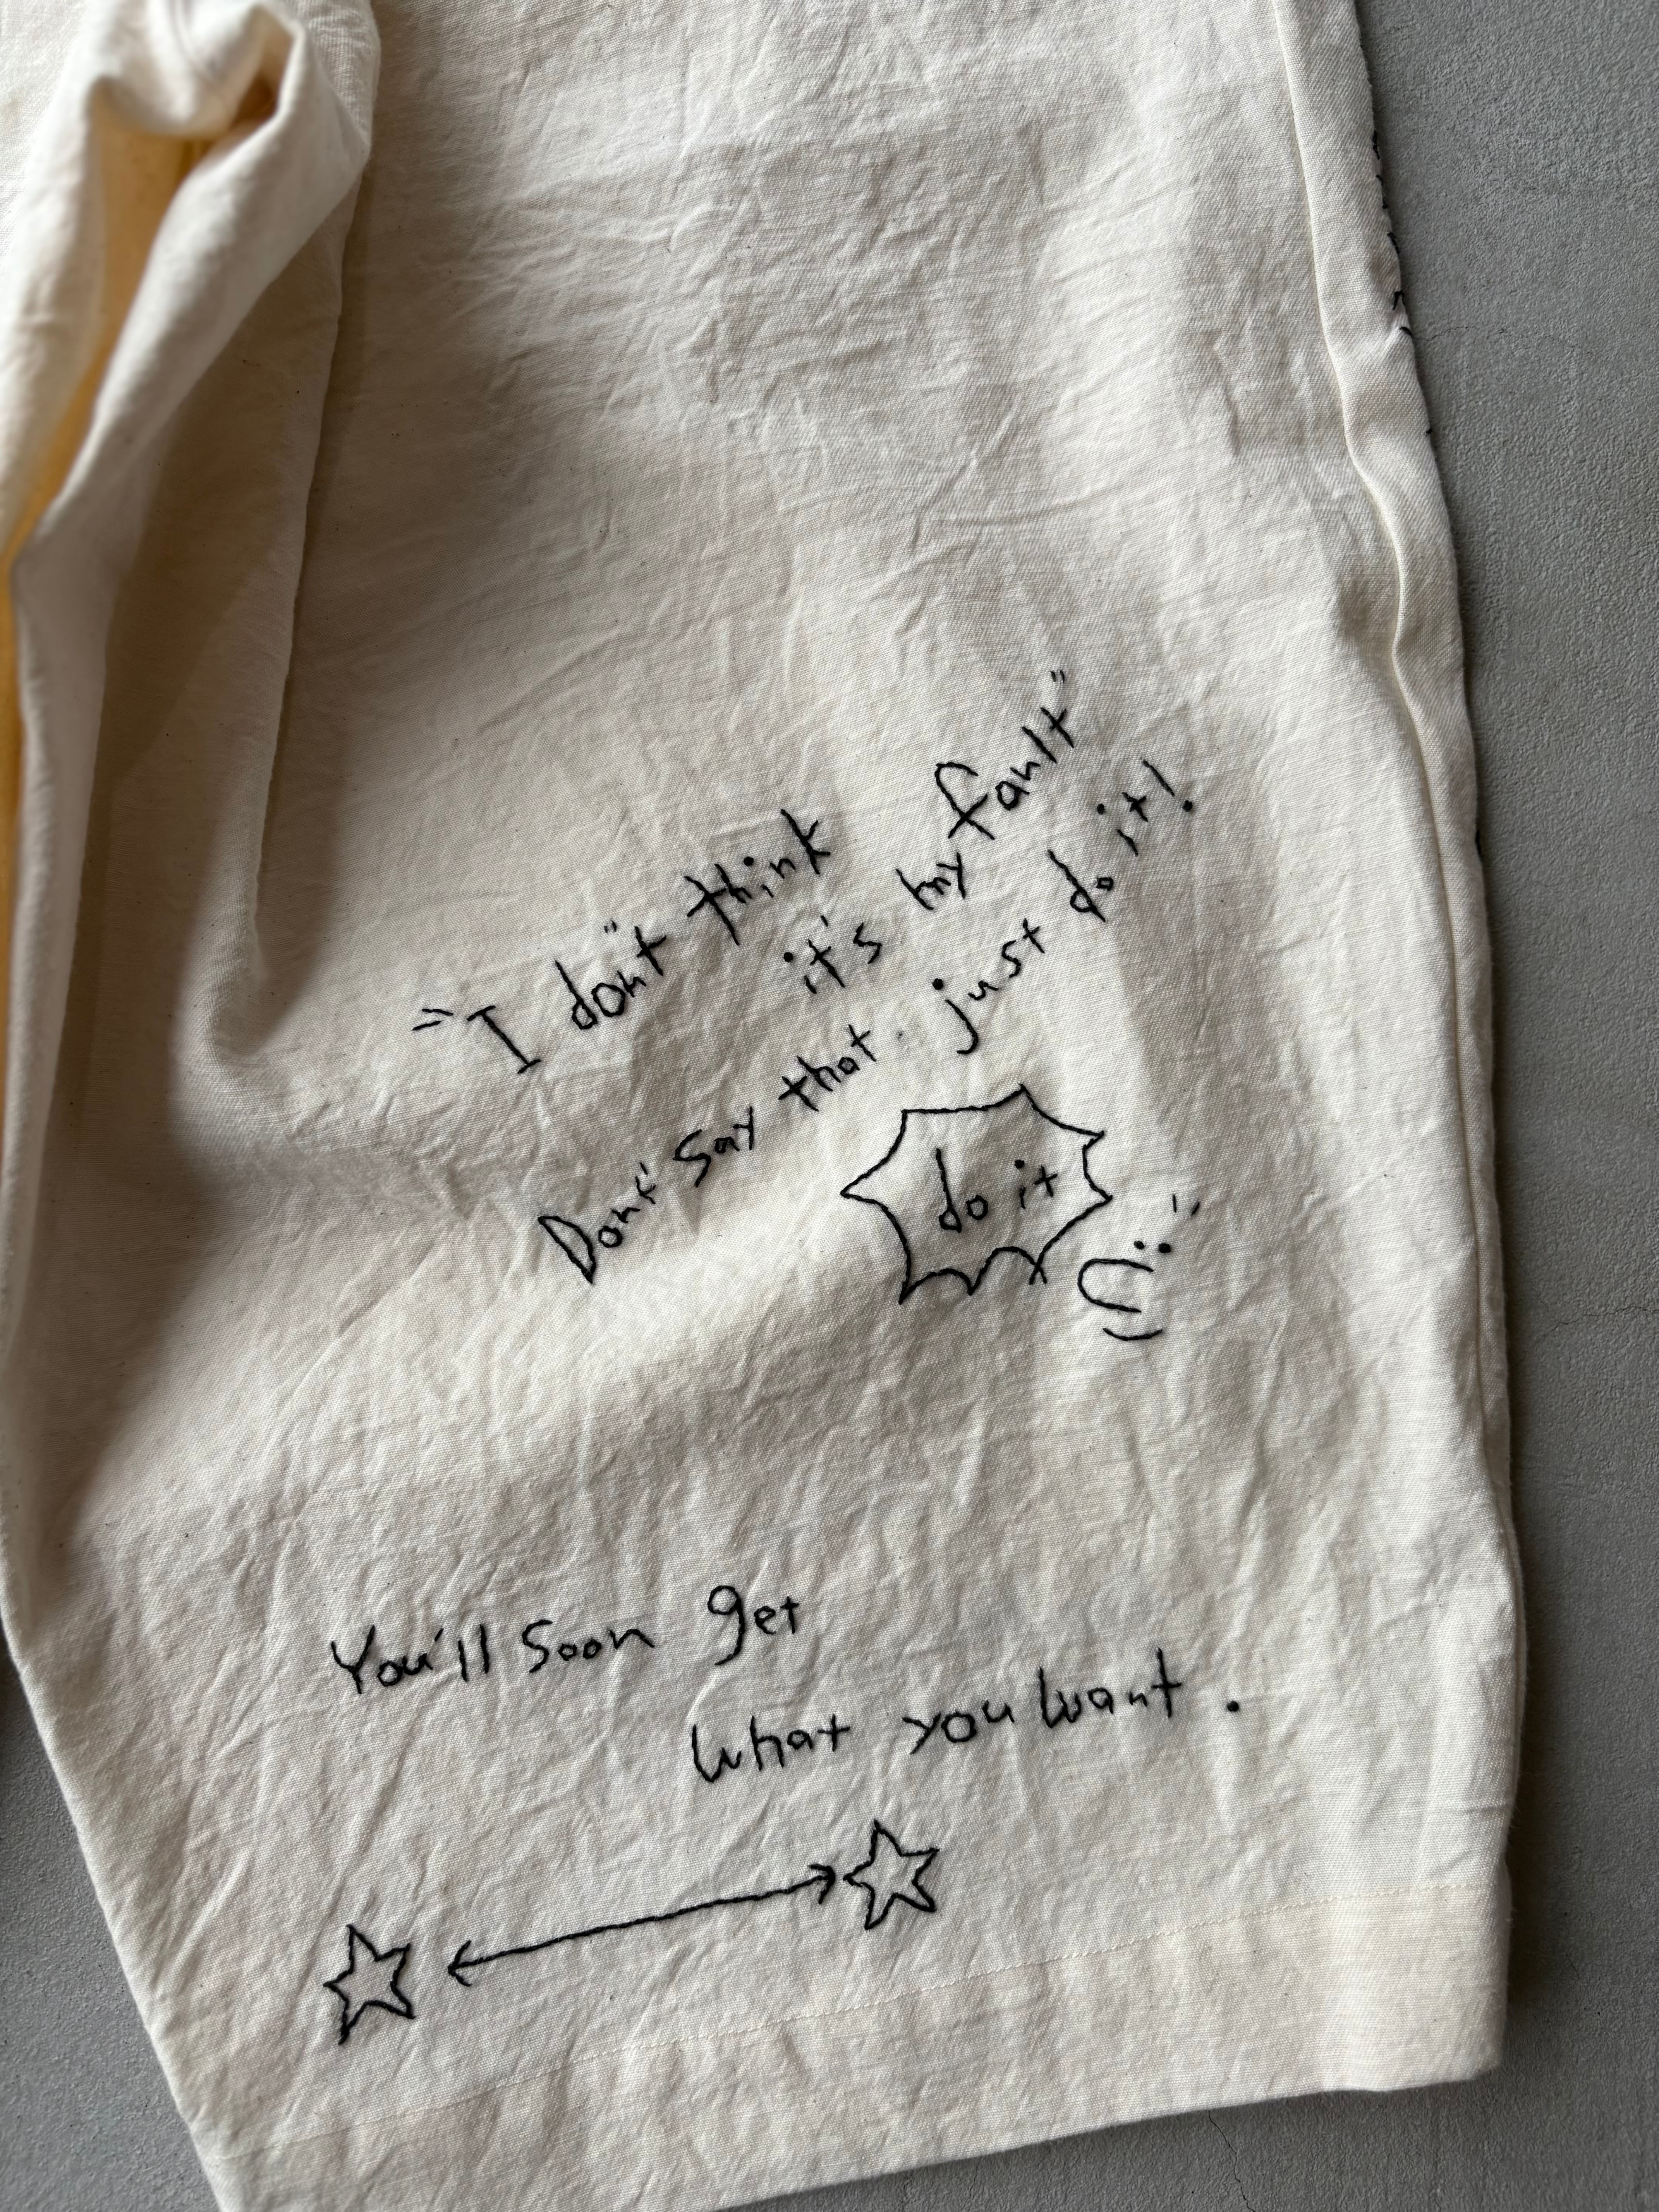 "I don"t think
it's my fault"
Don't say that. just do it!
do it
You'll soon get
what you want.